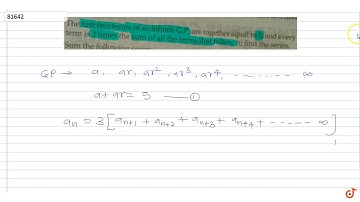 81642
The first two terms of an infinite G.P. are together equal to 5, and every
term is 3 times the sum of all the terms that follow it; find the series.
Sum the following series
GP → a, ar, ar², ar³, ar⁴, ------- ∞
a + ar = 5 —— ①
aₙ = 3 [ aₙ₊₁ + aₙ₊₂ + aₙ₊₃ + aₙ₊₄ + ----- ∞ ]